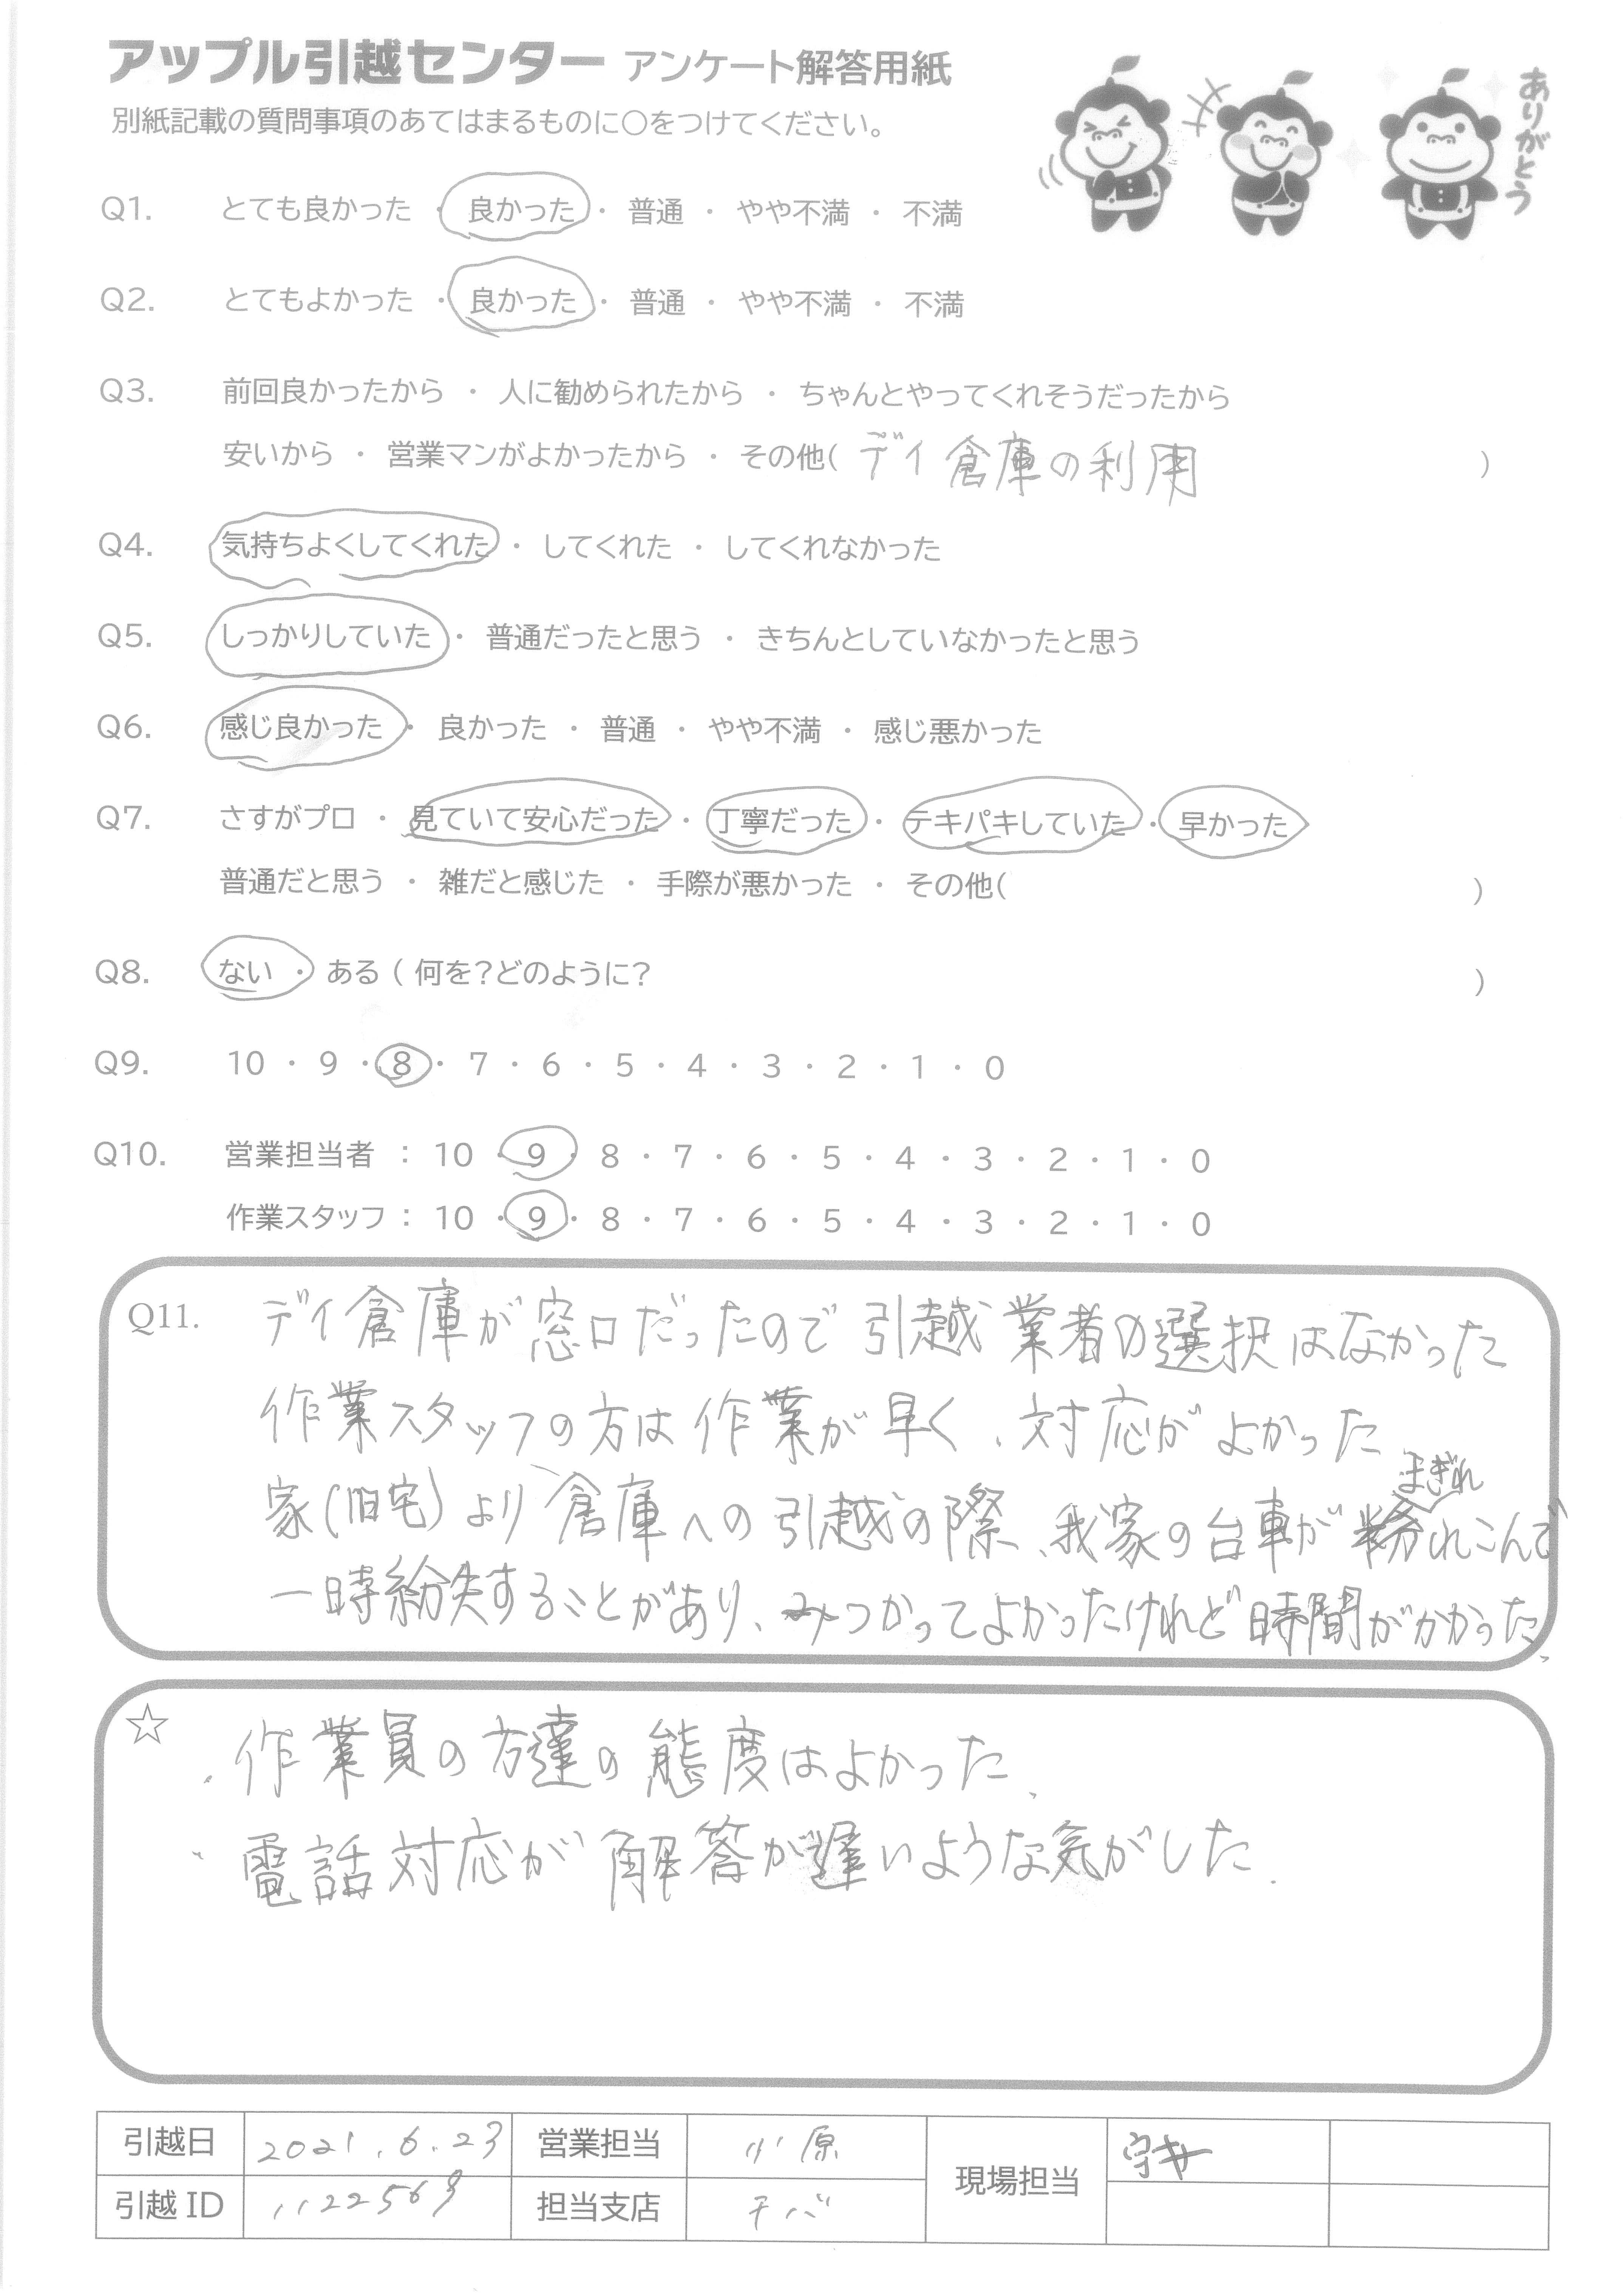 アップル引越センター アンケート解答用紙
ありがとう
別紙記載の質問事項のあてはまるものに○をつけてください。
Q1. とても良かった ・ 良かった ・ 普通 ・ やや不満 ・ 不満
Q2. とてもよかった ・ 良かった ・ 普通 ・ やや不満 ・ 不満
Q3. 前回良かったから ・ 人に勧められたから ・ ちゃんとやってくれそうだったから
安いから ・ 営業マンがよかったから ・ その他( デイ倉庫の利用 )
Q4. 気持ちよくしてくれた ・ してくれた ・ してくれなかった
Q5. しっかりしていた ・ 普通だったと思う ・ きちんとしていなかったと思う
Q6. 感じ良かった ・ 良かった ・ 普通 ・ やや不満 ・ 感じ悪かった
Q7. さすがプロ ・ 見ていて安心だった ・ 丁寧だった ・ テキパキしていた ・ 早かった
普通だと思う ・ 雑だと感じた ・ 手際が悪かった ・ その他( )
Q8. ない ・ ある ( 何を?どのように? )
Q9. 10 ・ 9 ・ 8 ・ 7 ・ 6 ・ 5 ・ 4 ・ 3 ・ 2 ・ 1 ・ 0
Q10. 営業担当者 : 10 ・ 9 ・ 8 ・ 7 ・ 6 ・ 5 ・ 4 ・ 3 ・ 2 ・ 1 ・ 0
作業スタッフ : 10 ・ 9 ・ 8 ・ 7 ・ 6 ・ 5 ・ 4 ・ 3 ・ 2 ・ 1 ・ 0
Q11. デイ倉庫が窓口だったので引越業者の選択はなかった
作業スタッフの方は作業が早く、対応がよかった
まぎれ
家(旧宅)より倉庫への引越の際、我家の台車が紛れこんで
一時紛失することがあり、みつかってよかったけれど時間がかかった、
☆ ・作業員の方達の態度はよかった、
・電話対応が解答が遅いような気がした.
引越日 2021.6.23 営業担当 小原 現場担当 守井
引越 ID 1122569 担当支店 チバ